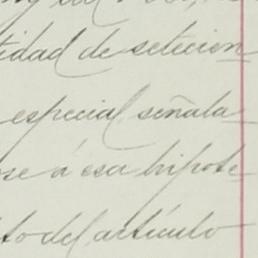 idad de setecien
especial señala
se á esa hipote
to del artículo